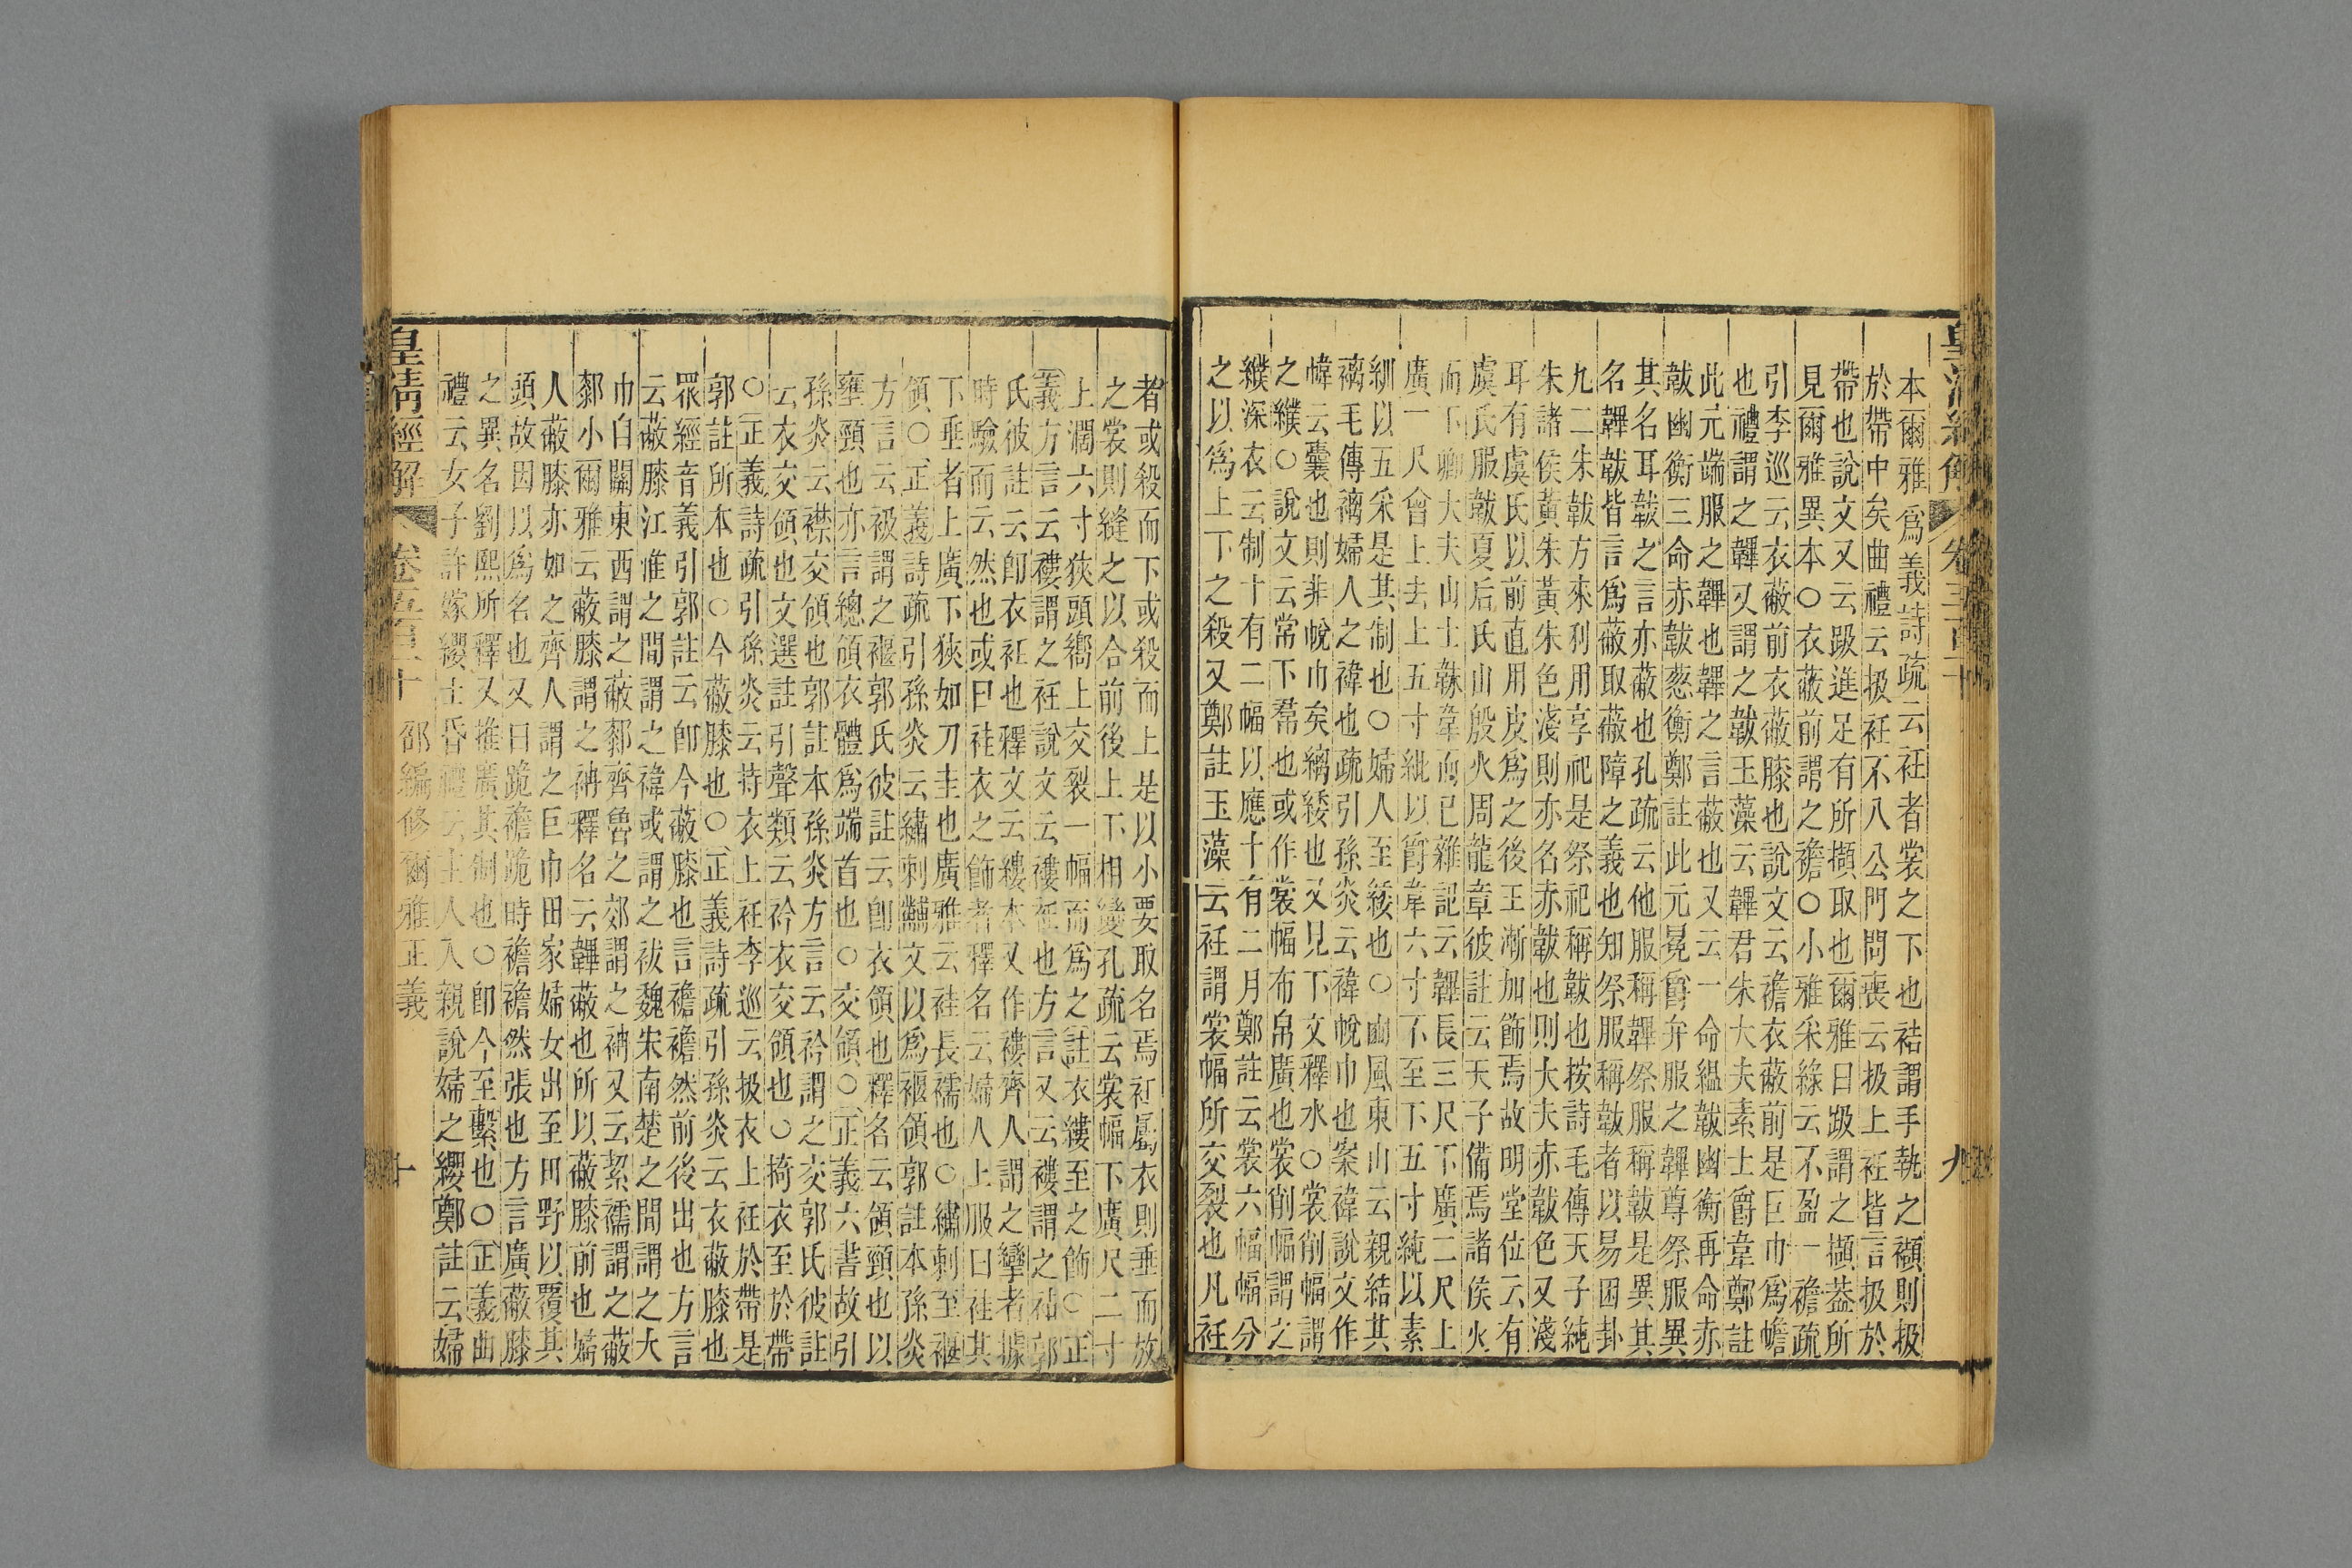 本爾雅爲義詩疏云衽者裳之下也袺謂手執之襭則扱
於帶中矣曲禮云扱衽不入公門問喪云扱上衽皆言扱於
帶也說文又云趿進足有所擷取也爾雅曰趿謂之擷葢所
見爾雅異本○衣蔽前謂之襜○小雅采綠云不盈一襜疏
引李巡云衣蔽前衣蔽膝也說文云襜衣蔽前是巨巾爲幨
也禮謂之韠又謂之韍玉藻云韠君朱大夫素士爵韋鄭註
此元端服之韠也韠之言蔽也又云一命縕韍幽衡再命赤
韍幽衡三命赤韍蔥衡鄭註此元冕爵弁服之韠尊祭服異
其名耳韍之言亦蔽也孔疏云他服稱韠祭服稱韍是異其
名韠韍皆言爲蔽取蔽障之義也知祭服稱韍者以易困卦
九二朱韍方來利用享祀是祭祀稱韍也按詩毛傳天子純
朱諸侯黃朱黃朱色淺則亦名赤韍也則大夫赤韍色又淺
耳有虞氏以前直用皮爲之後王漸加飾焉故明堂位云有
虞氏服韍夏后氏山殷火周龍章彼註云天子備焉諸侯火
而下卿大夫山士韎韋而已雜記云韠長三尺下廣二尺上
廣一尺會上去上五寸紕以爵韋六寸不至下五寸純以素
紃以五采是其制也○婦人至緌也○豳風東山云親結其
褵毛傳褵婦人之褘也疏引孫炎云褘帨巾也案褘說文作
幃云囊也則非帨巾矣縭緌也又見下文釋水○裳削幅謂
之纀○說文云常下帬也或作裳幅布帛廣也裳削幅謂之
纀深衣云制十有二幅以應十有二月鄭註云裳六幅幅分
之以爲上下之殺又鄭註玉藻云衽謂裳幅所交裂也凡衽
九
者或殺而下或殺而上是以小要取名焉衽屬衣則垂而放
之裳則縫之以合前後上下相變孔疏云裳幅下廣尺二寸
上濶六寸狹頭嚮上交裂一幅而爲之註衣縷至之飾○正
義方言云褸謂之衽說文云褸衽也方言又云褸謂之袩郭
氏彼註云卽衣衽也釋文云縷本又作褸齊人謂之攣者據
時驗而云然也或曰袿衣之飾者釋名云婦人上服曰袿其
下垂者上廣下狹如刀圭也廣雅云袿長襦也○繡刺至褗
領○正義詩疏引孫炎云繡刺黼文以爲褗領郭註本孫炎
方言云衱謂之褗郭氏彼註云卽衣領也釋名云領頸也以
壅頸也亦言總領衣體爲端首也○交領○正義六書故引
孫炎云襟交領也郭註本孫炎方言云衿謂之交郭氏彼註
云衣交領也文選註引聲類云衿衣交領也○掎衣至於帶
○正義詩疏引孫炎云持衣上衽李巡云扱衣上衽於帶是
郭註所本也○今蔽膝也○正義詩疏引孫炎云衣蔽膝也
眾經音義引郭註云卽今蔽膝也言襜襜然前後出也方言
云蔽膝江淮之間謂之褘或謂之祓魏宋南楚之間謂之大
巾自關東西謂之蔽䣛齊魯之郊謂之衻又云絜襦謂之蔽
䣛小爾雅云蔽膝謂之衻釋名云韠蔽也所以蔽膝前也婦
人蔽膝亦如之齊人謂之巨巾田家婦女出至田野以覆其
頭故因以爲名也又曰跪襜跪時襜襜然張也方言廣蔽膝
之異名劉熙所釋又推廣其制也○卽今至繫也○正義曲
禮云女子許嫁纓士昏禮云主人入親說婦之纓鄭註云婦
皇清經解　卷五百十　邵編修爾雅正義　十